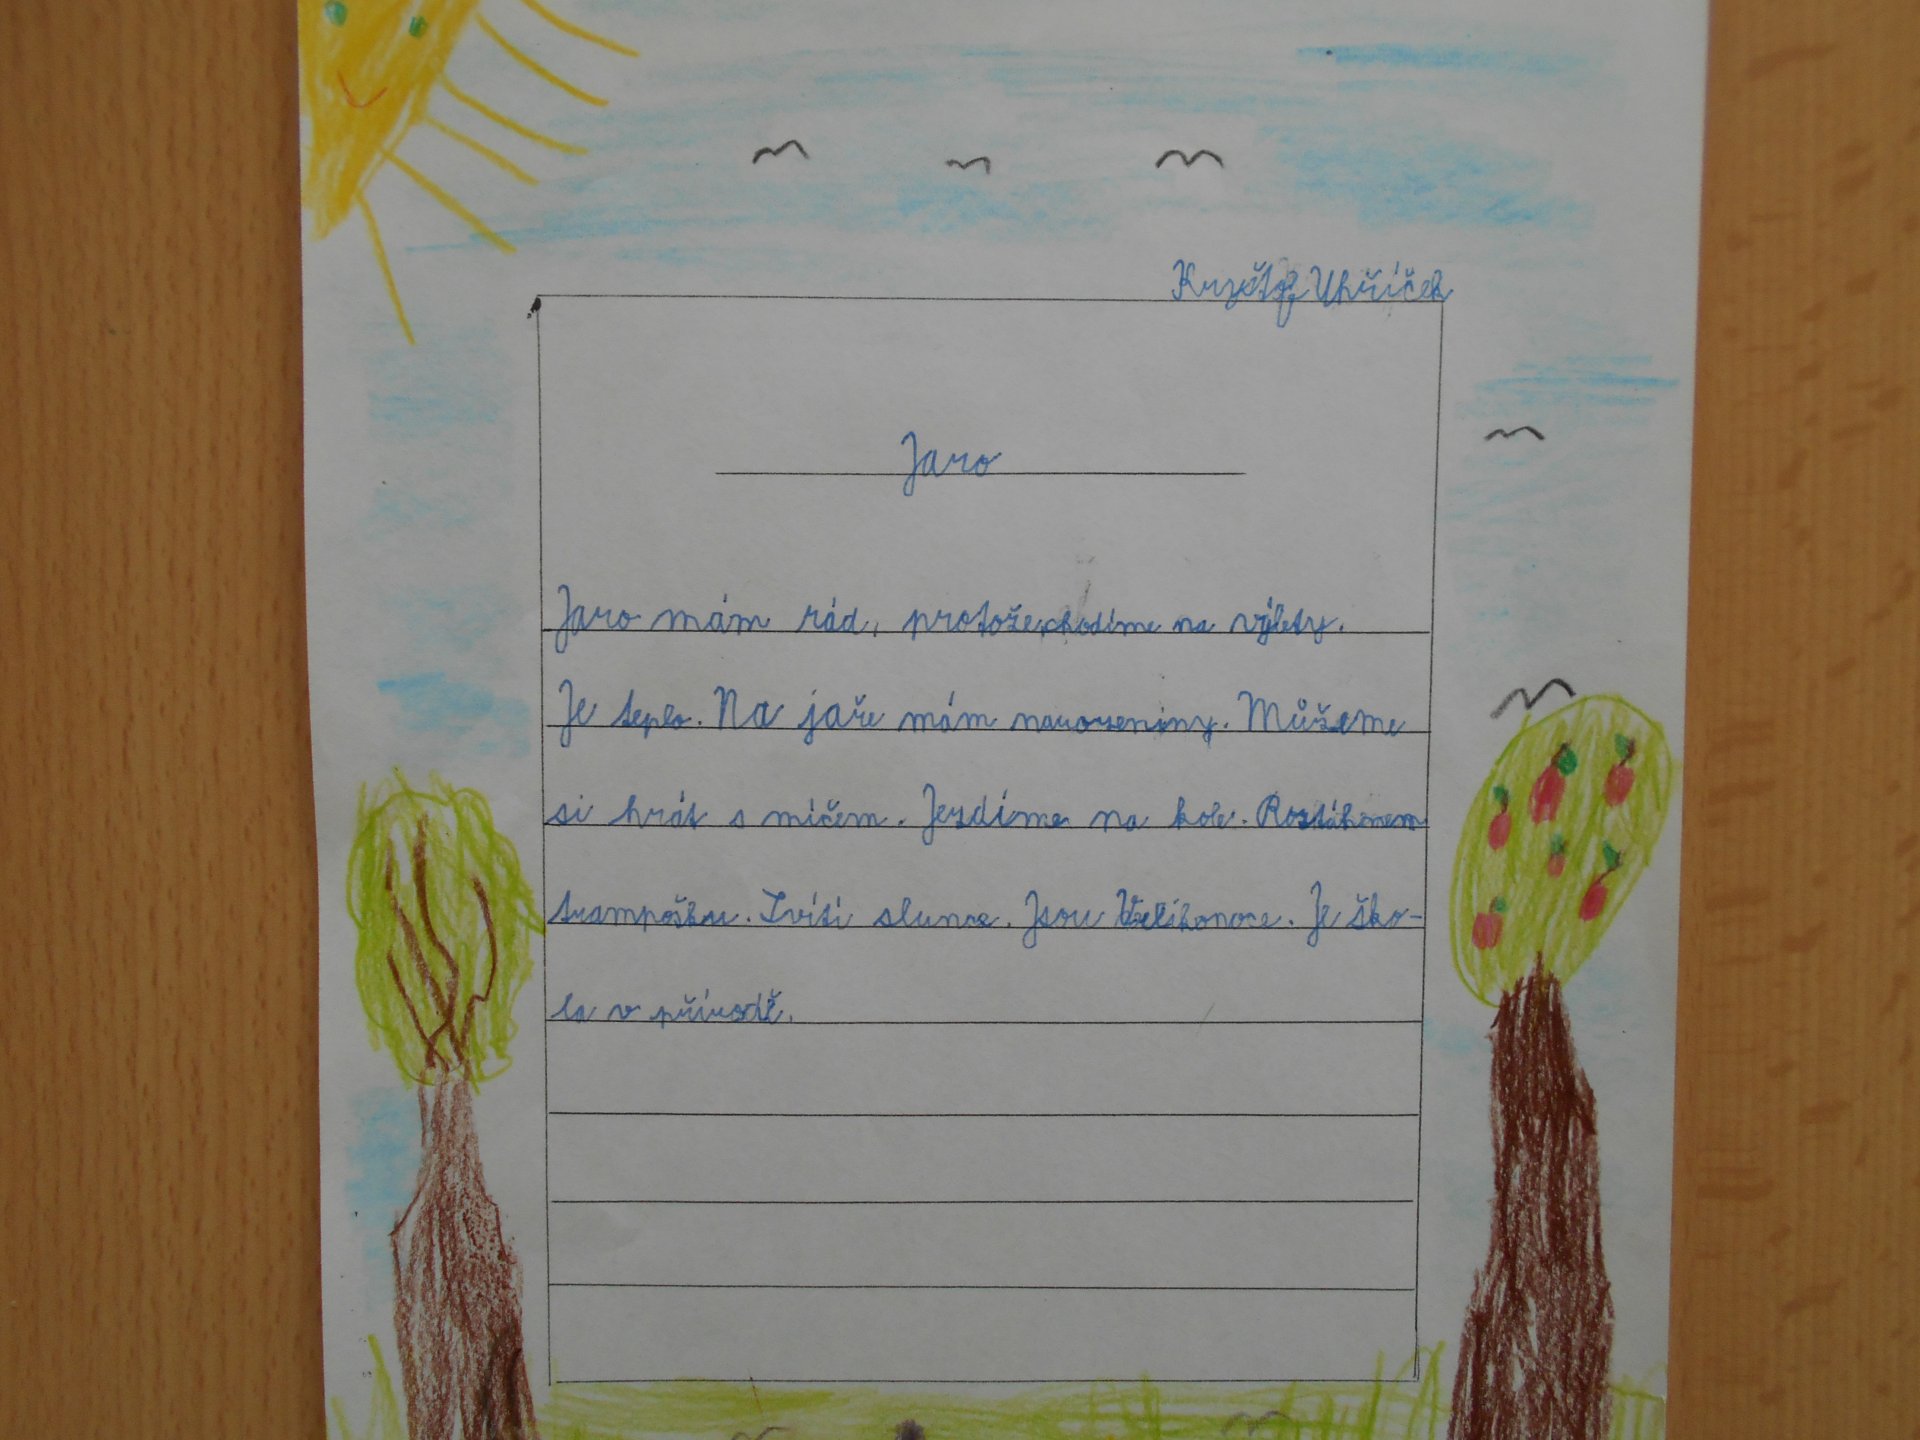 Kryštof Uhříček
Jaro
Jaro mám rád, protože chodíme na výlety.
Je teplo. Na jaře mám narozeniny. Můžeme
si hrát s míčem. Jezdíme na kole. Roztáhneme
trampošku. Svítí slunce. Jsou Velikonoce. Je ško-
la v přírodě.